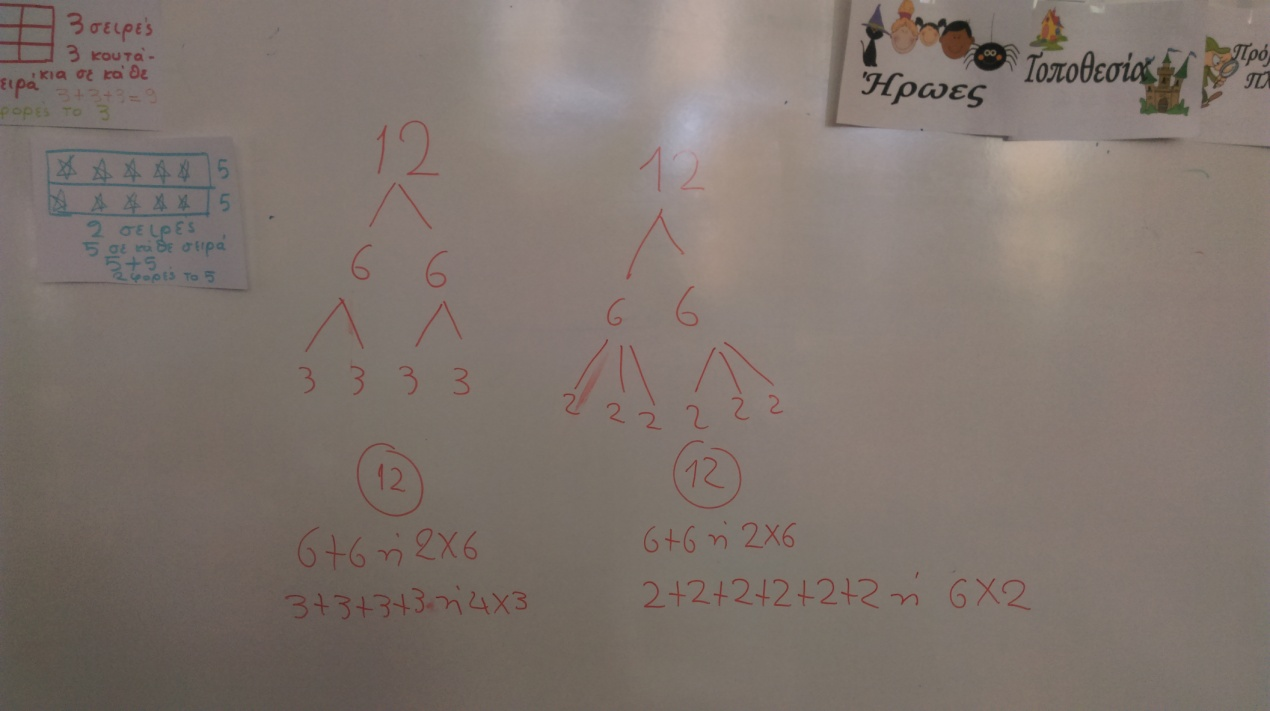 3 σειρές
3 κουτά-
κια σε κάθε
σειρά
3+3+3=9
φορές το 3
5
5
2 σειρές
5 σε κάθε σειρά
5+5
2 φορές το 5
Ήρωες
Τοποθεσία
12
6 6
3 3 3 3
12
6+6 ή 2×6
3+3+3+3 ή 4×3
12
6 6
2 2 2 2 2 2
12
6+6 ή 2×6
2+2+2+2+2+2 ή 6×2